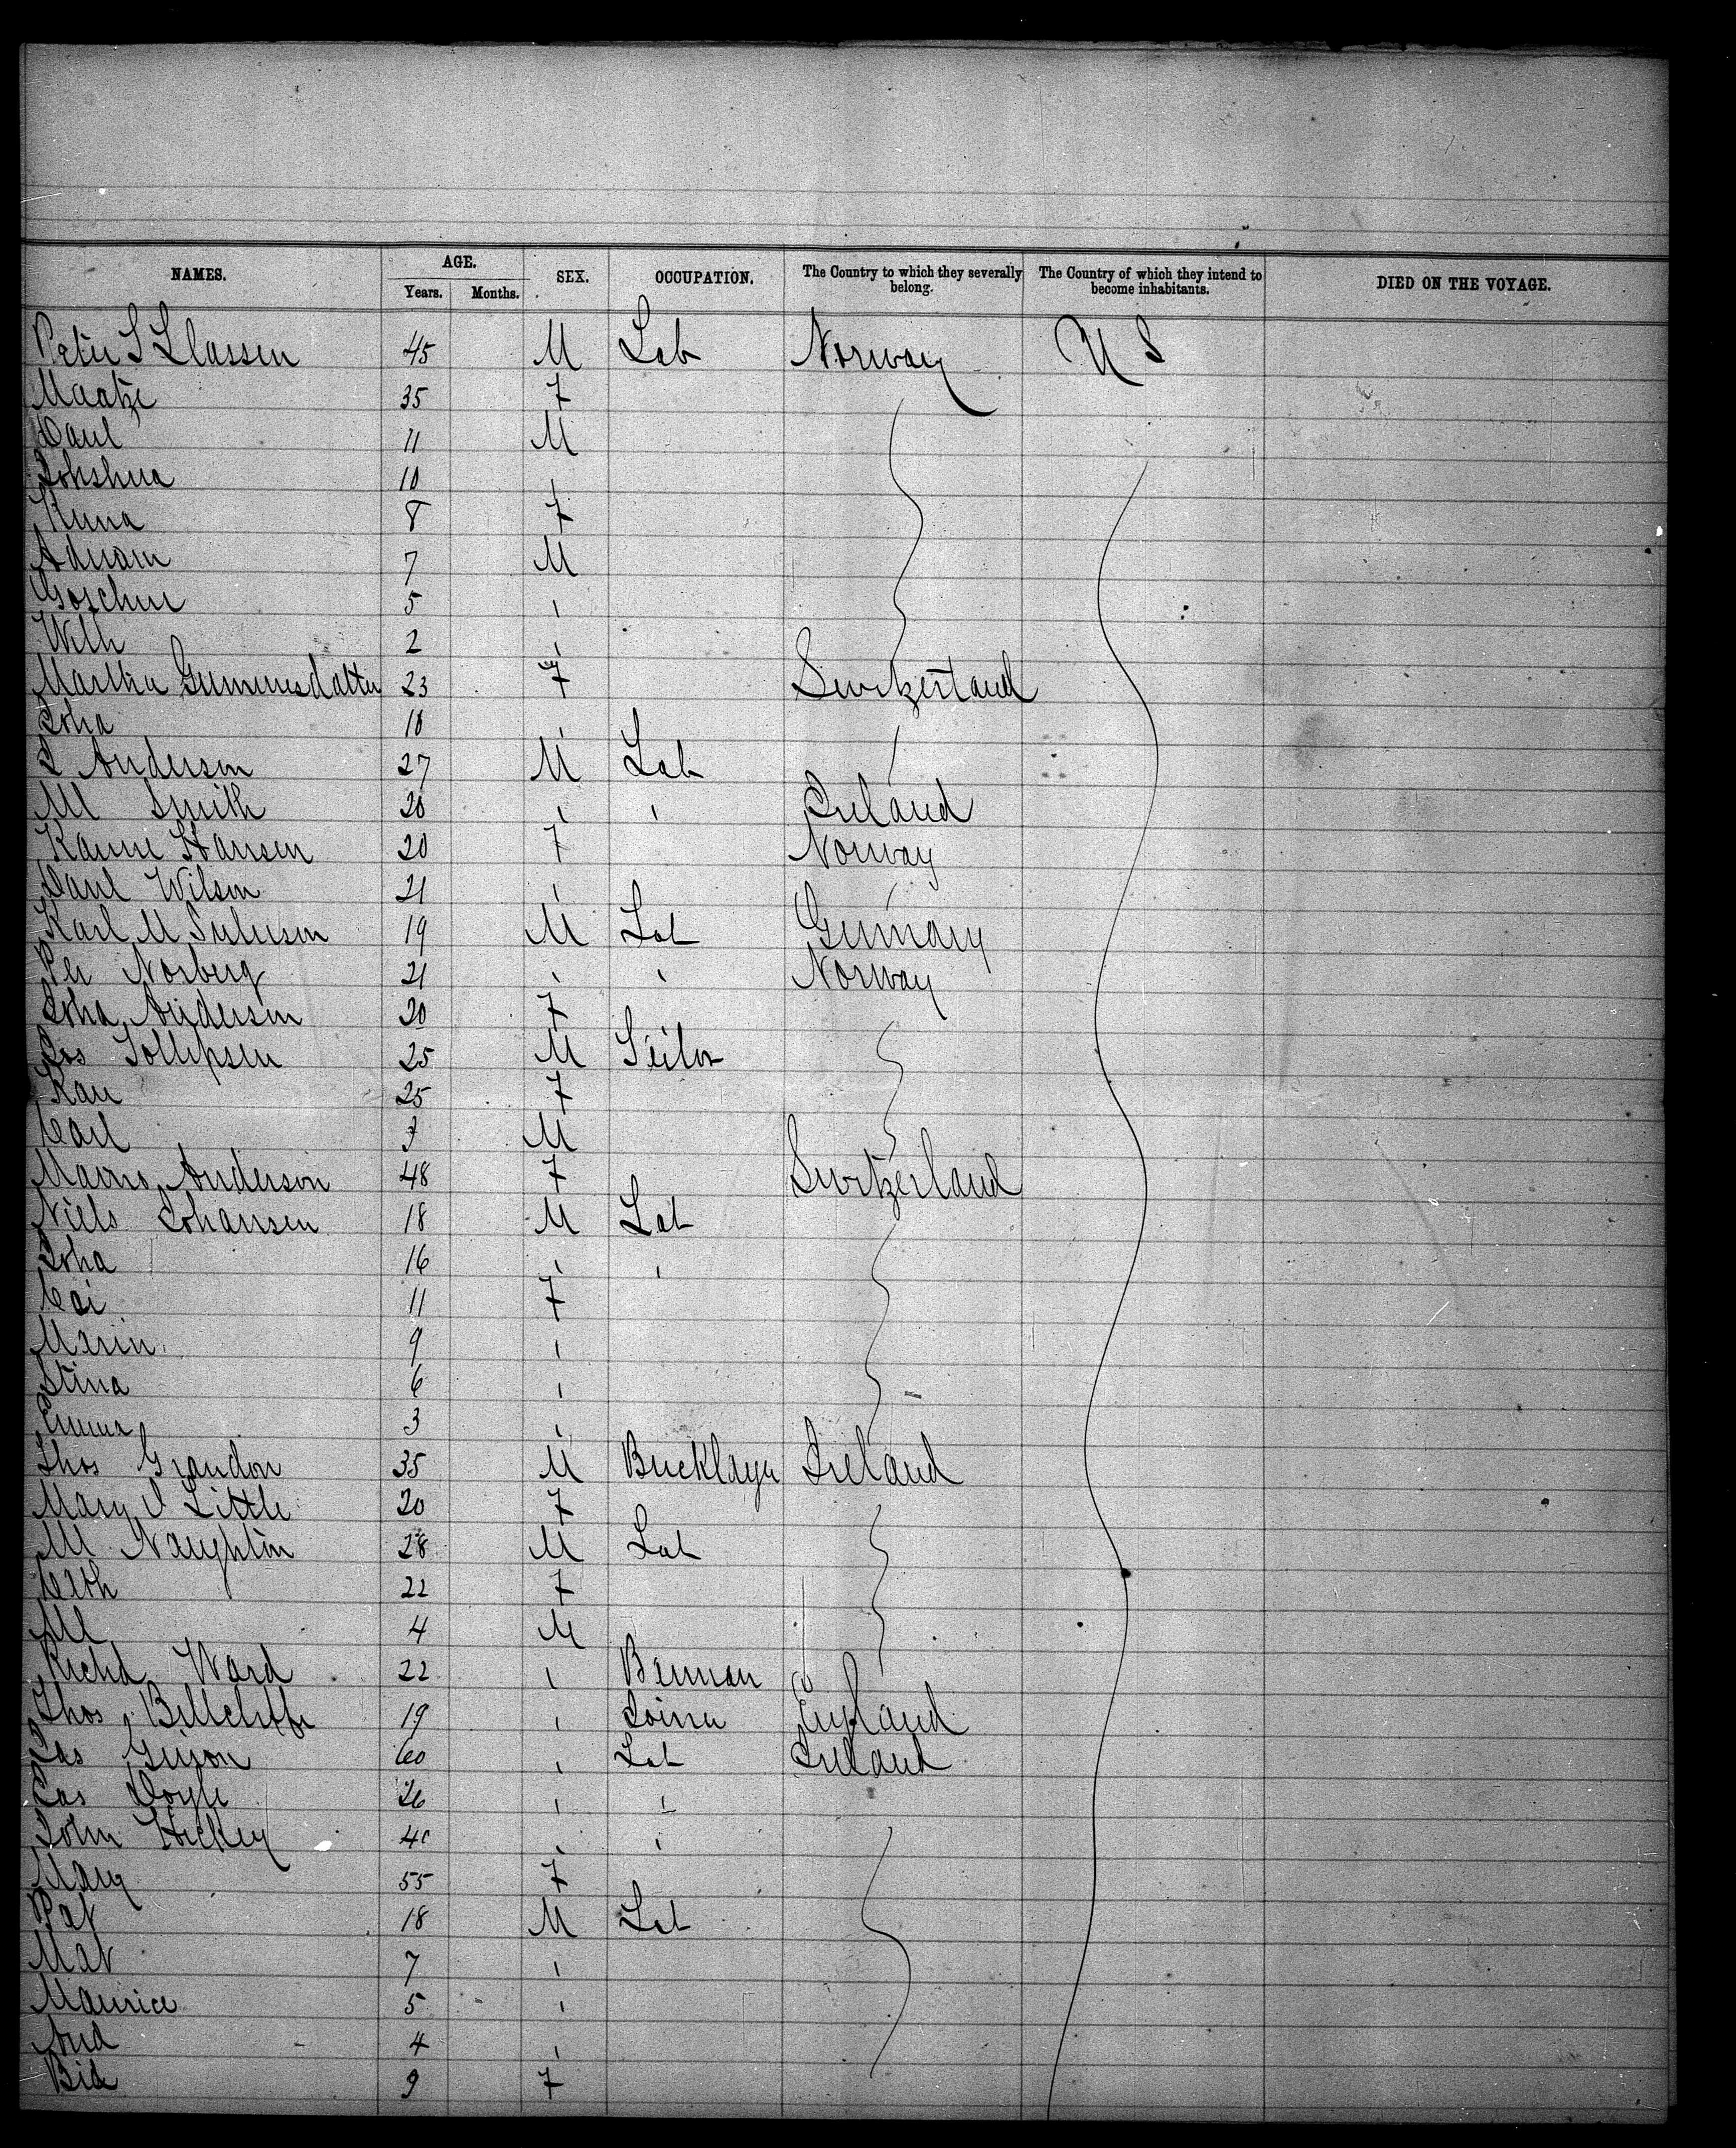 NAMES. AGE. SEX. OCCUPATION. The Country to which they severally belong. The Country of which they intend to become inhabitants. DIED ON THE VOYAGE.
Years. Months.
Peter S Classen 45 M Lab Norway U S
Maatze 35 F
Paul 11 M
Johshua 10 "
8 F
Adriam 7 M
5 "
Welh 2 "
Martha Gummesdatter 23 F Switzerland
Joha 18 "
L Anderson 27 M Lab
M Smith 20 " " Ireland
Hansen 20 F Norway
Paul Wilson 21 "
Karl M 19 M Lab Germany
Per Norberg 21 " " Norway
Joha Anderson 20 F
Jos Tollepsen 25 M
Kari 25 F
Carl 3 M
Anderson 48 F Switzerland
Niels Johansen 18 M Lab
Joha 16 " "
11 F
9 "
Stina 6 "
Emma 3 "
Thos Grandon 35 M Bricklayer Ireland
Mary J Little 20 F
M Naughton 28 M Lab
Cath 22 F
M 4 M
Richd Ward 22 "
Thos Billcliffe 19 " Joiner England
Jas 60 " Lab Ireland
Jas Doyle 26 " "
John Hickey 40 " "
Mary 55 F
Pat 18 M Lab
Mat 7 "
Maurice 5 "
And 4 "
Bid 9 F